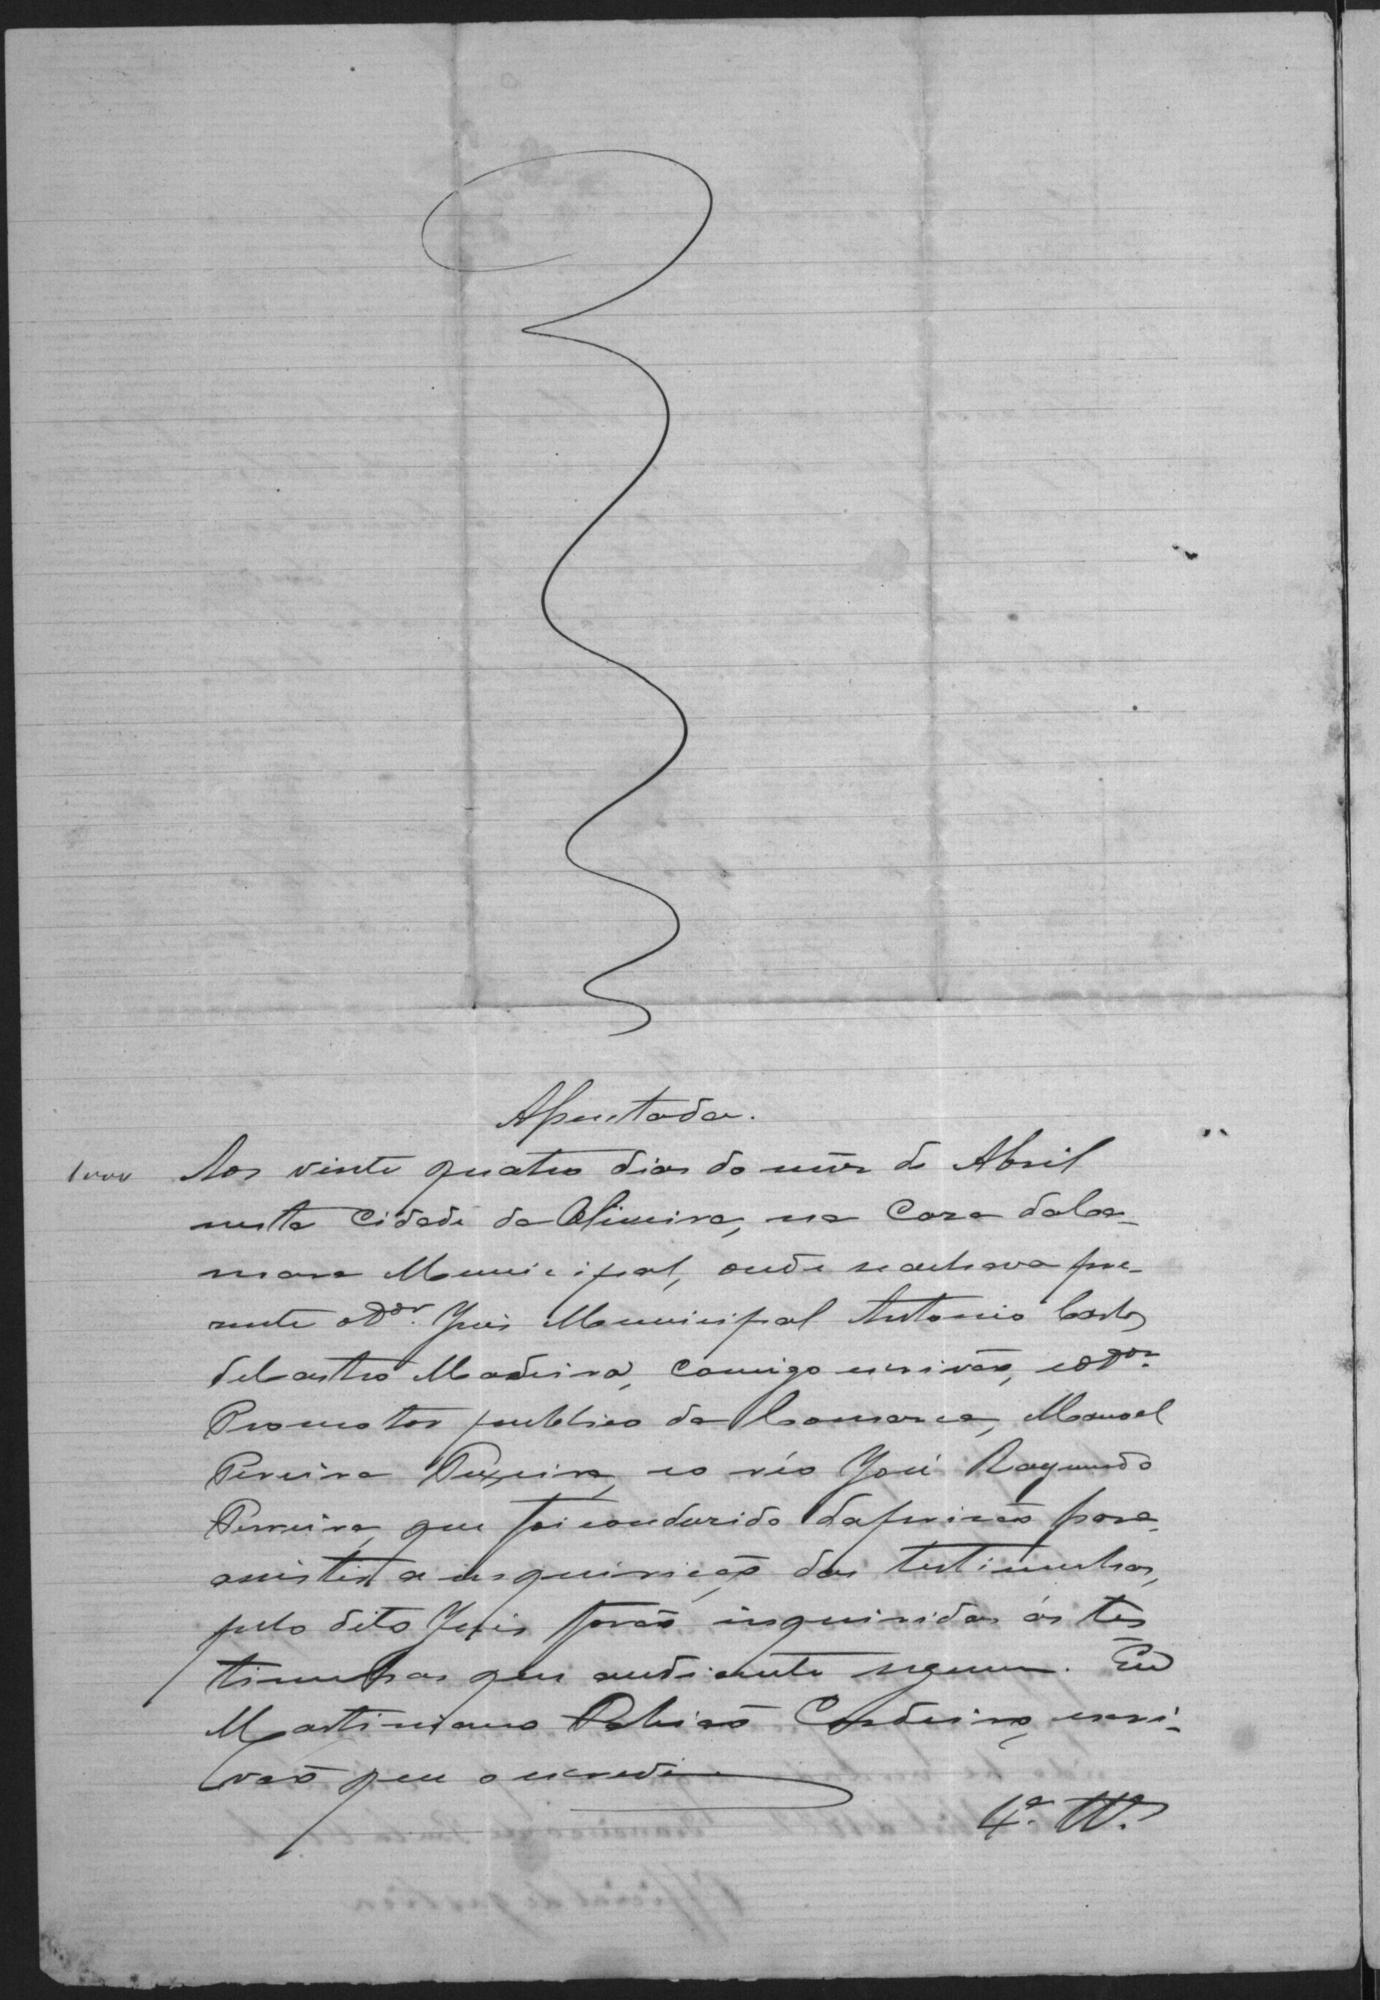 Assentada.
1000 Aos vinte quatro dias do mês de Abril
nesta Cidade da Oliveira, na Caza da Ca-
mara Municipal, onde se achava pre-
sente o Dor. Juis Municipal Antonio Carlos
de Castro Madeira, comigo escrivão, e o Dor.
Promotor publico da Comarca, Manoel
Pereira Teixeira, e o réo José Raymundo
Ferreira, que foi conduzido da prizão para
assistir a inquirição das testimunhas,
pelo dito Juis forão inquiridas ás tes
timunhas que audiante seguem. Eu
Martiniano Cordeiro, escri-
vão que o escrevi
4ª. Tª.